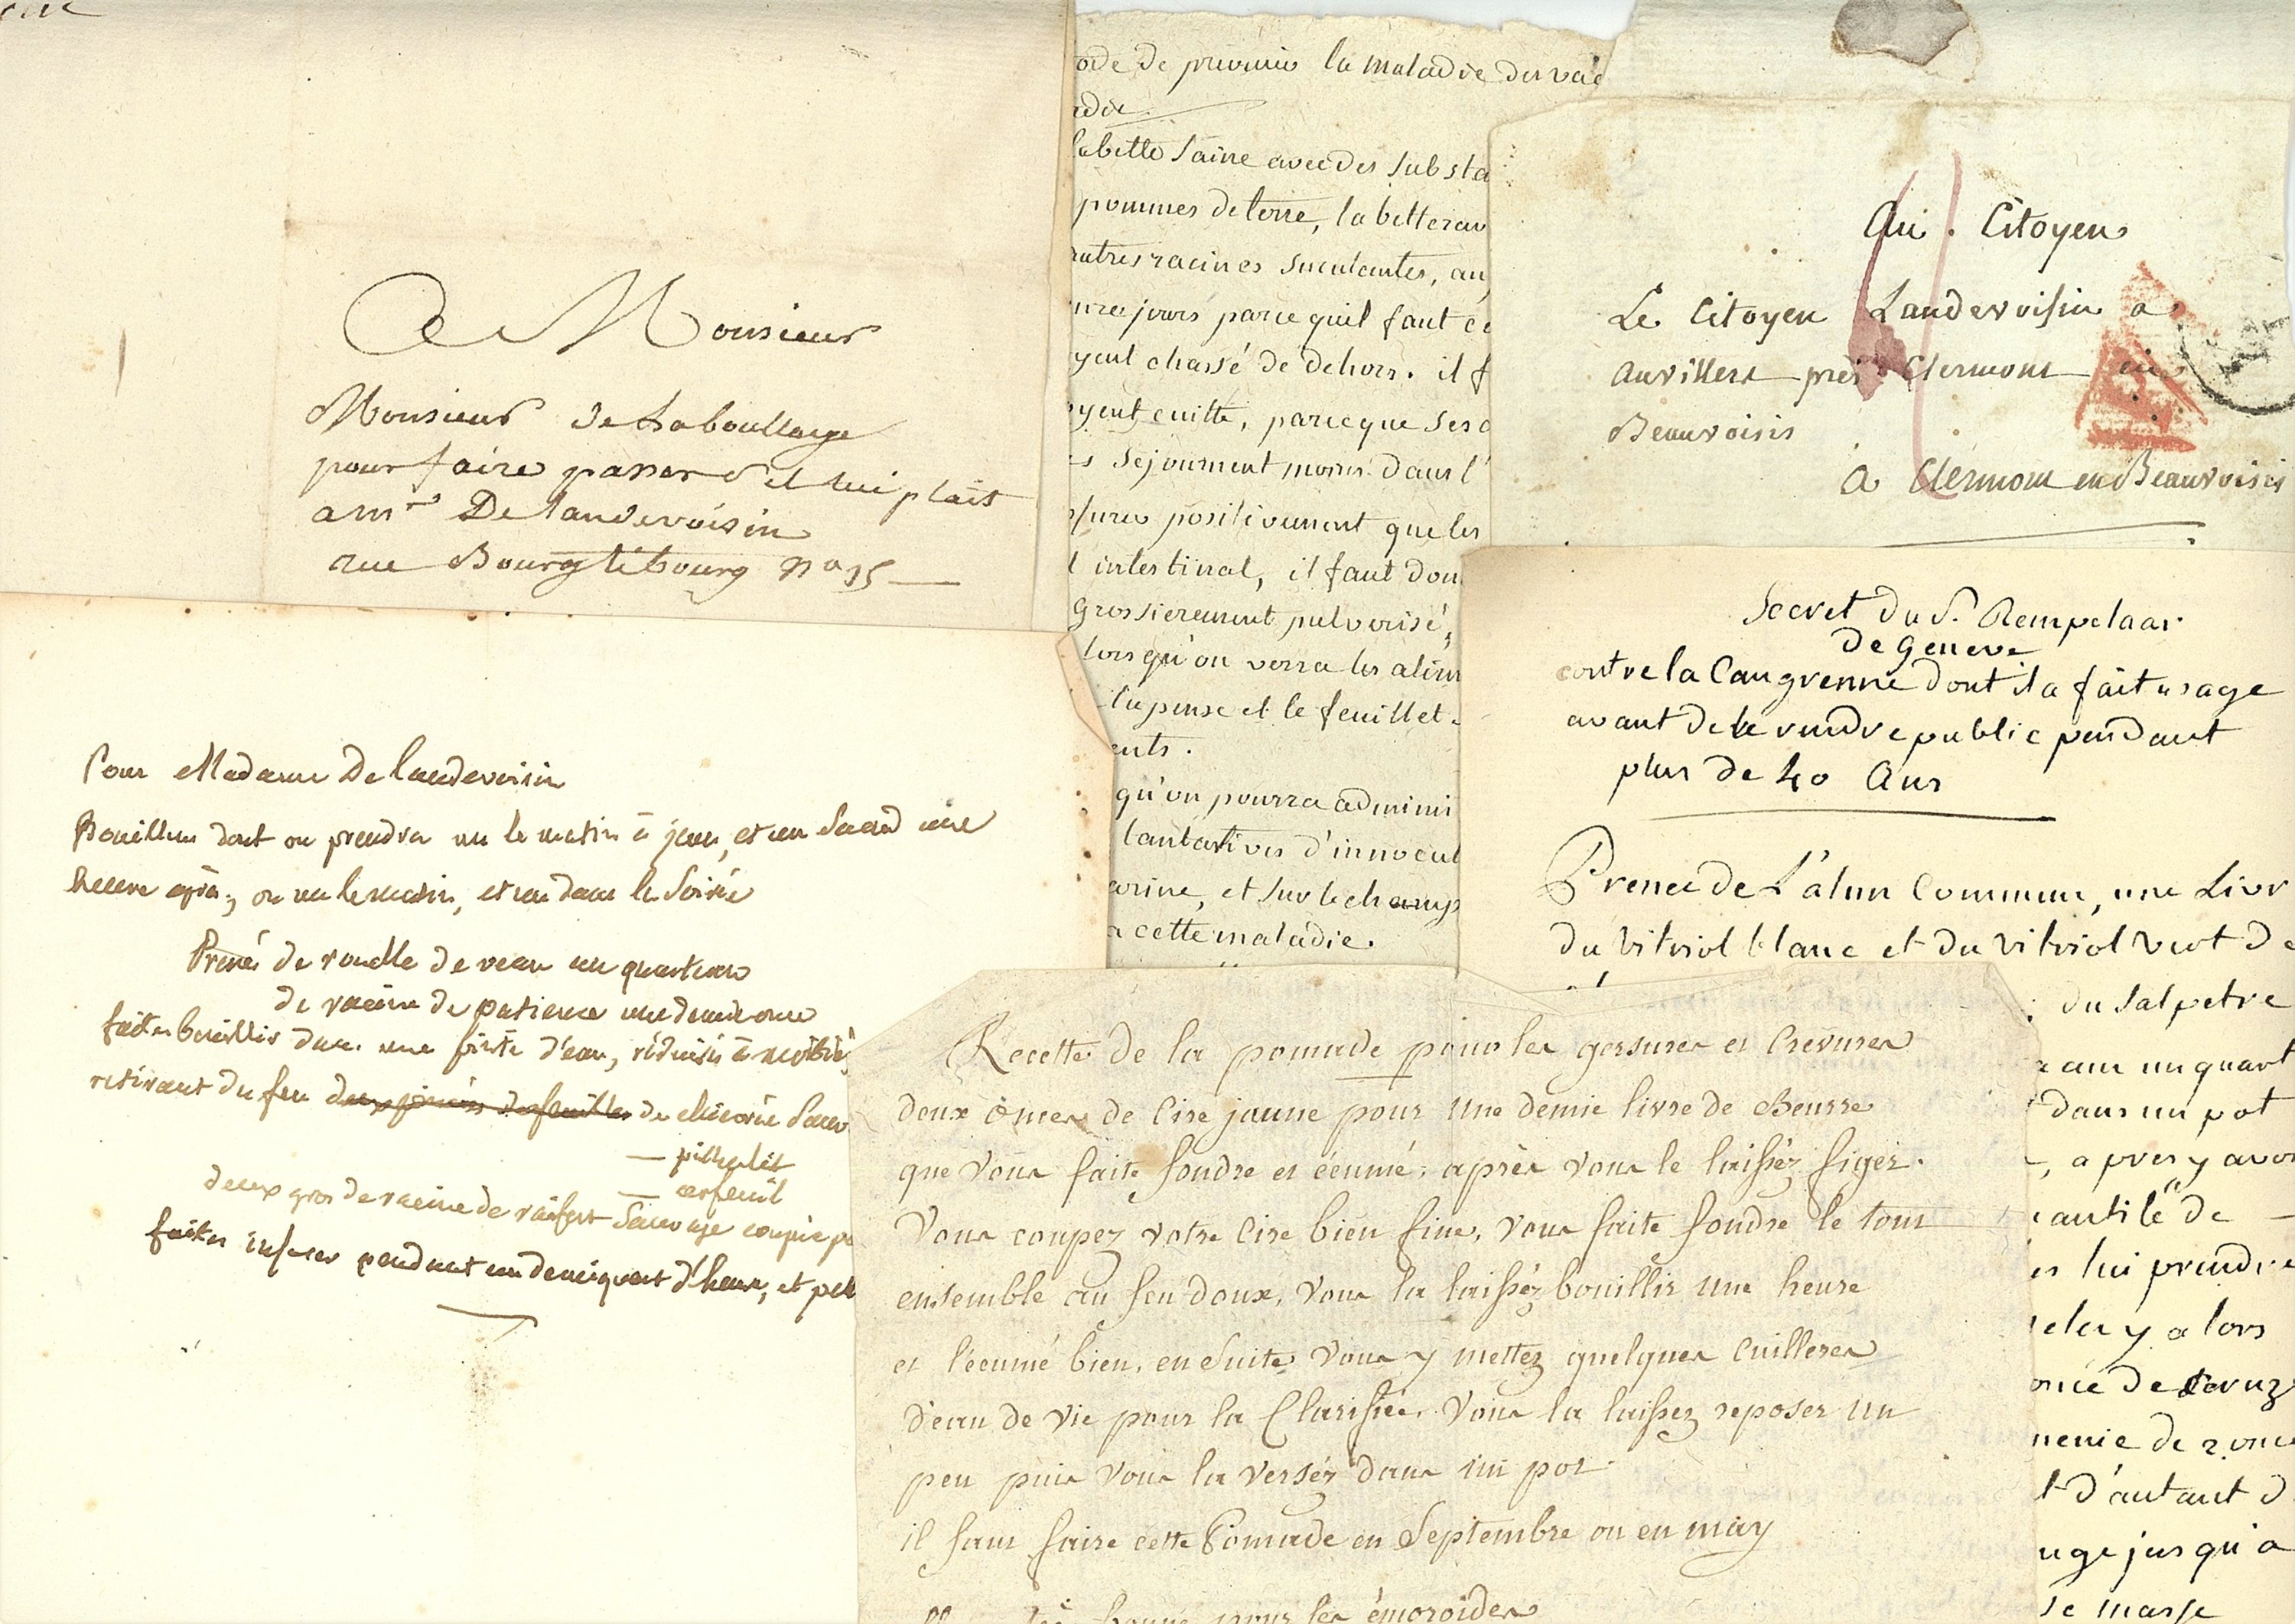 A Monsieur
Monsieur de Laboullaye
pour faire passer s'il lui plait
a mr De Landevoisin
rue Bourgtibourg no 15
ode de prevenir la maladie des vac
adie
la bette saine avec des substa
pommes de terre, la betterav
autres racines suculantes, au
jours parce quil faut
yent chassé de dehors. il f
yent cuitte, parceque ses
sejournent moins dans l'
positivement que les
intestinal, il faut don
grossierement pulverisé,
lorsqu'on verra les alim
la panse et le feuillet
ents.
qu'on pourra admini
tantatives d'innocul
arine, et sur le champ
a cette maladie.
Au Citoyen
Le Citoyen Landevoisin a
auvillers près Clermont en
Beauvoisis
a Clermont en Beauvoisis
Secret du S. Rempelaar
de Geneve
contre la Cangrenne dont il a fait usage
avant de le rendre public pendant
plus de 40 Ans
Prenez de L'alun Commun, une Livr
du vitriol blanc et du vitriol vert de
du salpetre
un quart
dans un pot
, apres y avoi
antité de
lui prendre
y alors
once de
de 2 once
d'autant d
uge jusqu'a
se masse
Pour Madame De Landevoisin
Bouillon dont on prendra un le matin à jeun, et un second une
heure après, ou un le matin, et un dans la soirée
Prenés de rouelle de veau un quarteron
de racine de patience une demie once
faites bouillir dans une pinte d'eau, réduisés à moitié,
retirant du feu deux poignées de feuilles de chicorée sauv
— pissenlit
— cerfeuil
deux gros de racine de raifort sauvage coupée p
faites infuser pendant un demi quart d'heure, et
Recette de la pomade pour les gersures et Crevures
deux onces de Cire jaune pour une demie livre de Beurre
que vous faite fondre et écumé, après vous le laissez figer.
Vous coupez votre Cire bien fine, vous faite fondre le tout
ensemble au feu doux, vous la laissez bouillir une heure
et l'écumé bien, en suite vous y mettez quelques Cuilleres
d'eau de vie pour la Clarifiée, Vous la laissez reposer un
peu puis vous la versez dans un pot.
il faut faire cette Pomade en Septembre ou en may
bonne pour les émoroïdes